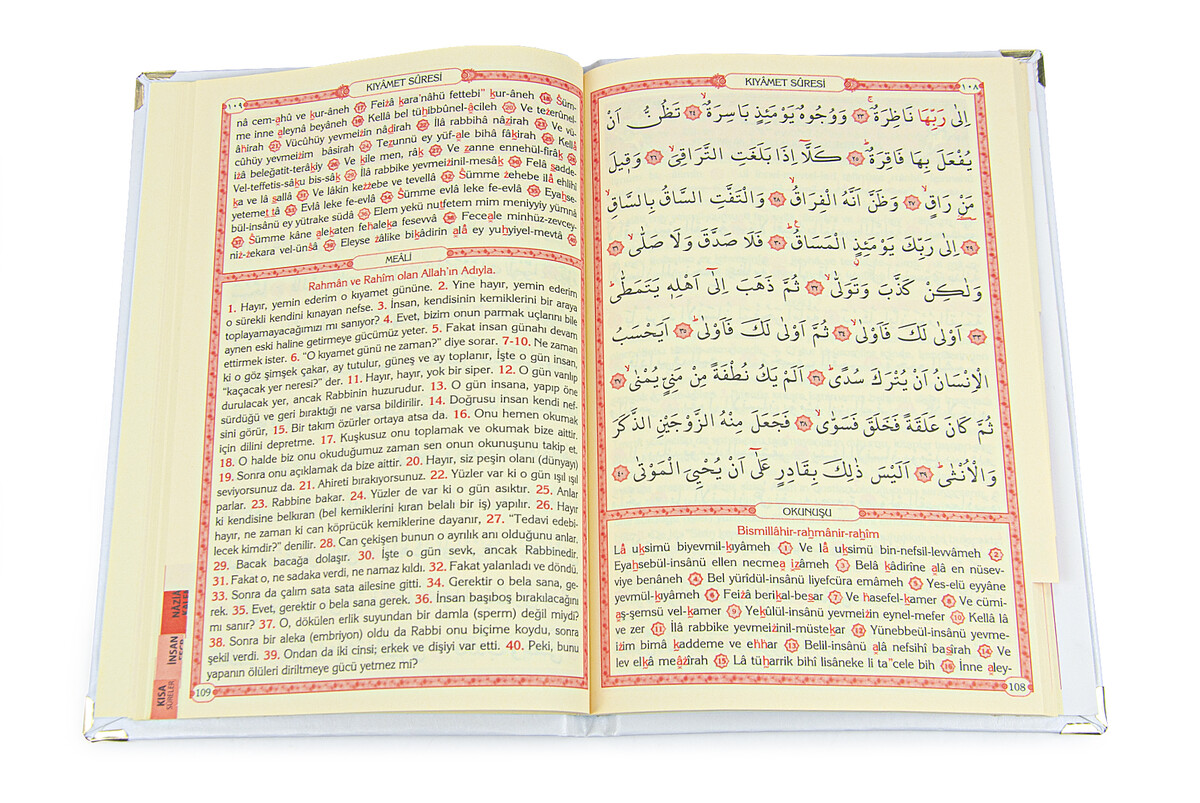 KIYÂMET SÛRESİ
١٠٨
اِلٰى رَبِّهَا نَاظِرَةٌۚ ٢٣ وَوُجُوهٌ يَوْمَئِذٍ بَاسِرَةٌۙ ٢٤ تَظُنُّ اَنْ
يُفْعَلَ بِهَا فَاقِرَةٌۜ ٢٥ كَلَّٓا اِذَا بَلَغَتِ التَّرَاقِيَۙ ٢٦ وَق۪يلَ
مَنْ رَاقٍۙ ٢٧ وَظَنَّ اَنَّهُ الْفِرَاقُۙ ٢٨ وَالْتَفَّتِ السَّاقُ بِالسَّاقِۙ
٢٩ اِلٰى رَبِّكَ يَوْمَئِذٍ الْمَسَاقُۜ ٣٠ فَلَا صَدَّقَ وَلَا صَلّٰىۙ ٣١
وَلٰكِنْ كَذَّبَ وَتَوَلّٰىۙ ٣٢ ثُمَّ ذَهَبَ اِلٰٓى اَهْلِه۪ يَتَمَطّٰىۜ
٣٣ اَوْلٰى لَكَ فَاَوْلٰىۙ ٣٤ ثُمَّ اَوْلٰى لَكَ فَاَوْلٰىۜ ٣٥ اَيَحْسَبُ
الْاِنْسَانُ اَنْ يُتْرَكَ سُدًىۜ ٣٦ اَلَمْ يَكُ نُطْفَةً مِنْ مَنِيٍّ يُمْنٰىۙ ٣٧
ثُمَّ كَانَ عَلَقَةً فَخَلَقَ فَسَوّٰىۙ ٣٨ فَجَعَلَ مِنْهُ الزَّوْجَيْنِ الذَّكَرَ
وَالْاُنْثٰىۜ ٣٩ اَلَيْسَ ذٰلِكَ بِقَادِرٍ عَلٰٓى اَنْ يُحْيِيَ الْمَوْتٰى ٤٠
OKUNUŞU
Bismillâhir-rahmânir-rahîm
Lâ uksimü biyevmil-kıyâmeh 1 Ve lâ uksimü bin-nefsil-levvameh 2
Eyahsebül-insânü ellen necmea izâmeh 3 Belâ kâdirîne alâ en nüsev-
viye benâneh 4 Bel yürîdül-insânü liyefcüra emâmeh 5 Yes-elü eyyâne
yevmül-kıyâmeh 6 Feizâ berikal-besar 7 Ve hasefel-kamer 8 Ve cümi-
aş-şemsü vel-kamer 9 Yekûlül-insânü yevmeizin eynel-mefer 10 Kellâ lâ
ve zer 11 İlâ rabbike yevmeizinil-müstekar 12 Yünebbeül-insânü yevme-
izim bimâ kaddeme ve ehhar 13 Belil-insânü alâ nefsihî basîrah 14 Ve
lev elkâ meâzîrah 15 Lâ tüharrik bihî lisâneke li ta"cele bih 16 İnne aley-
108
KIYÂMET SÛRESİ
١٠٩
nâ cem-ahû ve kur-âneh 17 Feizâ kara'nâhü fettebi" kur-âneh 18 Süm-
me inne aleynâ beyâneh 19 Kellâ bel tühibbûnel-âcileh 20 Ve tezerûnel-
âhirah 21 Vücûhüy yevmeizin nâdirah 22 İlâ rabbihâ nâzirah 23 Ve vü-
cûhüy yevmeizim bâsirah 24 Tezunnü ey yüf-ale bihâ fâkirah 25 Kellâ
izâ beleğatit-terâkıy 26 Ve kîle men, râk 27 Ve zanne ennehül-firâk 28
Vel-teffetis-sâku bis-sâk 29 İlâ rabbike yevmeizinil-mesâk 30 Felâ sadde-
ka ve lâ sallâ 31 Ve lâkin kezzebe ve tevellâ 32 Sümme zehebe ilâ ehlihî
yetemettâ 33 Evlâ leke fe-evlâ 34 Sümme evlâ leke fe-evlâ 35 Eyahse-
bül-insânü ey yütrake südâ 36 Elem yekü nutfetem mim meniyyiy yümnâ
37 Sümme kâne alekaten fehaleka fesevvâ 38 Feceale minhüz-zevcey-
niz-zekara vel-ünsâ 39 Eleyse zâlike bikâdirin alâ ey yuhyiyel-mevtâ 40
MEÂLİ
Rahmân ve Rahîm olan Allah'ın Adıyla.
1. Hayır, yemin ederim o kıyamet gününe. 2. Yine hayır, yemin ederim
o sürekli kendini kınayan nefse. 3. İnsan, kendisinin kemiklerini bir araya
toplayamayacağımızı mı sanıyor? 4. Evet, bizim onun parmak uçlarını bile
aynen eski haline getirmeye gücümüz yeter. 5. Fakat insan günahı devam
ettirmek ister. 6. "O kıyamet günü ne zaman?" diye sorar. 7-10. Ne zaman
ki o göz şimşek çakar, ay tutulur, güneş ve ay toplanır, İşte o gün insan,
"kaçacak yer neresi?" der. 11. Hayır, hayır, yok bir siper. 12. O gün vanlıp
durulacak yer, ancak Rabbinin huzurudur. 13. O gün insana, yapıp öne
sürdüğü ve geri bıraktığı ne varsa bildirilir. 14. Doğrusu insan kendi nef-
sini görür, 15. Bir takım özürler ortaya atsa da. 16. Onu hemen okumak
için dilini depretme. 17. Kuşkusuz onu toplamak ve okumak bize aittir.
18. O halde biz onu okuduğumuz zaman sen onun okunuşunu takip et.
19. Sonra onu açıklamak da bize aittir. 20. Hayır, siz peşin olanı (dünyayı)
seviyorsunuz da. 21. Ahireti bırakıyorsunuz. 22. Yüzler var ki o gün ışıl ışıl
parlar. 23. Rabbine bakar. 24. Yüzler de var ki o gün asıktır. 25. Anlar
ki kendisine belkıran (bel kemiklerini kıran belalı bir iş) yapılır. 26. Hayır
hayır, ne zaman ki can köprücük kemiklerine dayanır, 27. "Tedavi edebi-
lecek kimdir?" denilir. 28. Can çekişen bunun o ayrılık anı olduğunu anlar.
29. Bacak bacağa dolaşır. 30. İşte o gün sevk, ancak Rabbinedir.
31. Fakat o, ne sadaka verdi, ne namaz kıldı. 32. Fakat yalanladı ve döndü.
33. Sonra da çalım sata sata ailesine gitti. 34. Gerektir o bela sana, ge-
rek. 35. Evet, gerektir o bela sana gerek. 36. İnsan başıboş bırakılacağını
mı sanır? 37. O, dökülen erlik suyundan bir damla (sperm) değil miydi?
38. Sonra bir aleka (embriyon) oldu da Rabbi onu biçime koydu, sonra
şekil verdi. 39. Ondan da iki cinsi; erkek ve dişiyi var etti. 40. Peki, bunu
yapanın ölüleri diriltmeye gücü yetmez mi?
109
NÂZİA
İNSAN
KISA
SÛRELER